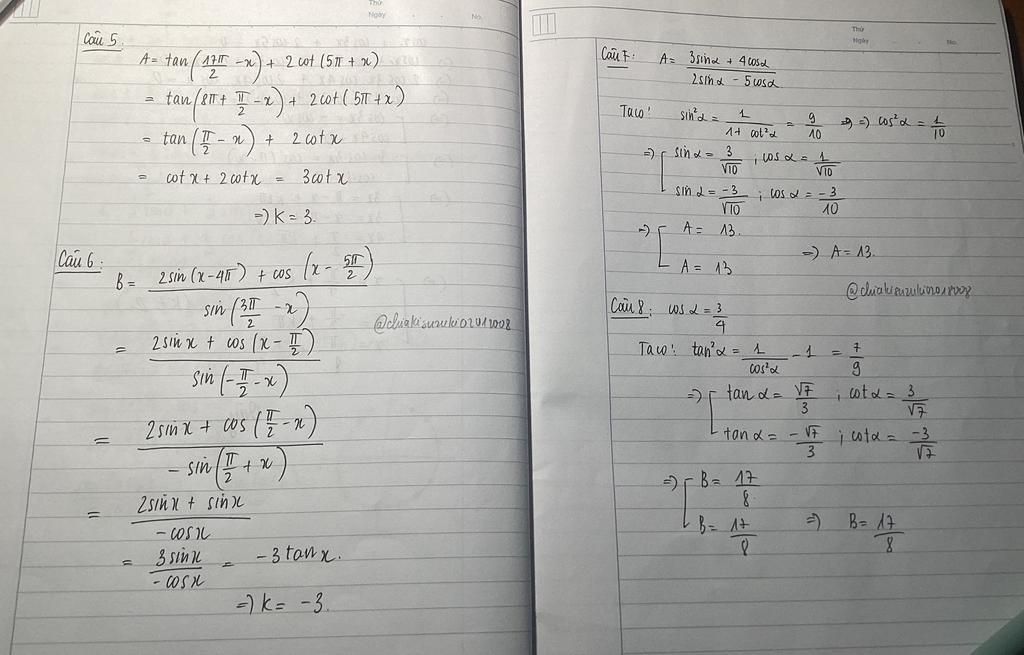 Thứ
Ngày . . No.
Câu 5.
A = tan(17π/2 - x) + 2 cot (5π + x)
= tan(8π + π/2 - x) + 2cot (5π + x)
= tan(π/2 - x) + 2 cot x
= cot x + 2 cot x = 3 cot x
=> K = 3.
Câu 6:
B = (2 sin (x - 4π) + cos (x - 5π/2)) / sin (3π/2 - x)
@chiakisuzuki02012008
= (2 sin x + cos (x - π/2)) / sin (-π/2 - x)
= (2 sin x + cos (π/2 - x)) / - sin (π/2 + x)
= (2 sin x + sin x) / - cos x
= 3 sin x / - cos x = -3 tan x.
=> k = -3.
Thứ
Ngày . . No.
Câu 7: A = (3 sin α + 4 cos α) / (2 sin α - 5 cos α)
Ta có: sin²α = 1 / (1 + cot²α) = 9/10 => => cos²α = 1/10
=> [ sin α = 3/√10 ; cos α = 1/√10
sin α = -3/√10 ; cos α = -3/10
=> [ A = 13.
A = 13 => A = 13.
@chiakisuzuki02012008
Câu 8: cos α = 3/4
Ta có: tan²α = 1/cos²α - 1 = 7/9
=> [ tan α = √7/3 ; cot α = 3/√7
tan α = -√7/3 ; cot α = -3/√7
=> [ B = 17/8
B = 17/8 => B = 17/8